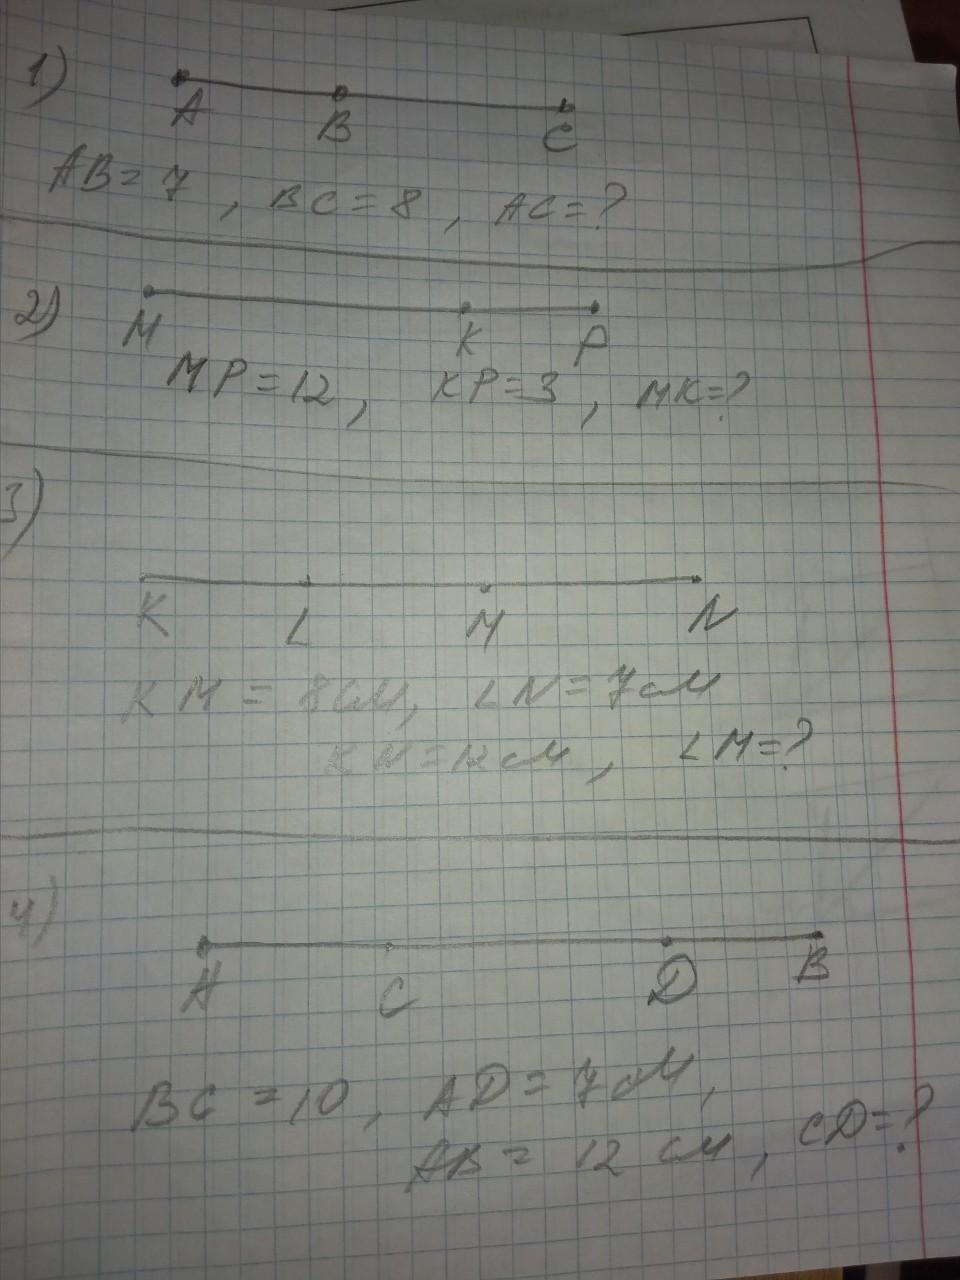 1)
A B C
AB = 7 , BC = 8 , AC = ?
2)
M K P
MP = 12 , KP = 3 , MK = ?
3)
K L M N
KM = 8 см, LN = 7 см
KN = 12 см , LM = ?
4)
A C D B
BC = 10 , AD = 7 см,
AB = 12 см , CD = ?